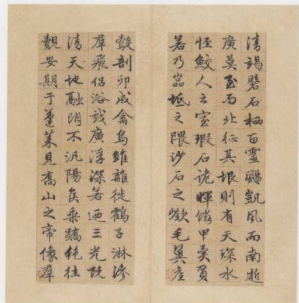 清竭磐石栖百靈颺凱風而南逝
廣莫至而北征其垠則有天琛水
怪鮫人之室瑕石詭暉鱗甲異質
若乃嵓坻之隈沙石之嶔毛翼產
鷇剖卵成禽鳧雛離褷鶴子淋滲
羣飛侶浴戲廣浮深若迺三光既
清天地融朗不汎陽侯乘蹻絕往
覿安期于蓬萊見喬山之帝像羣